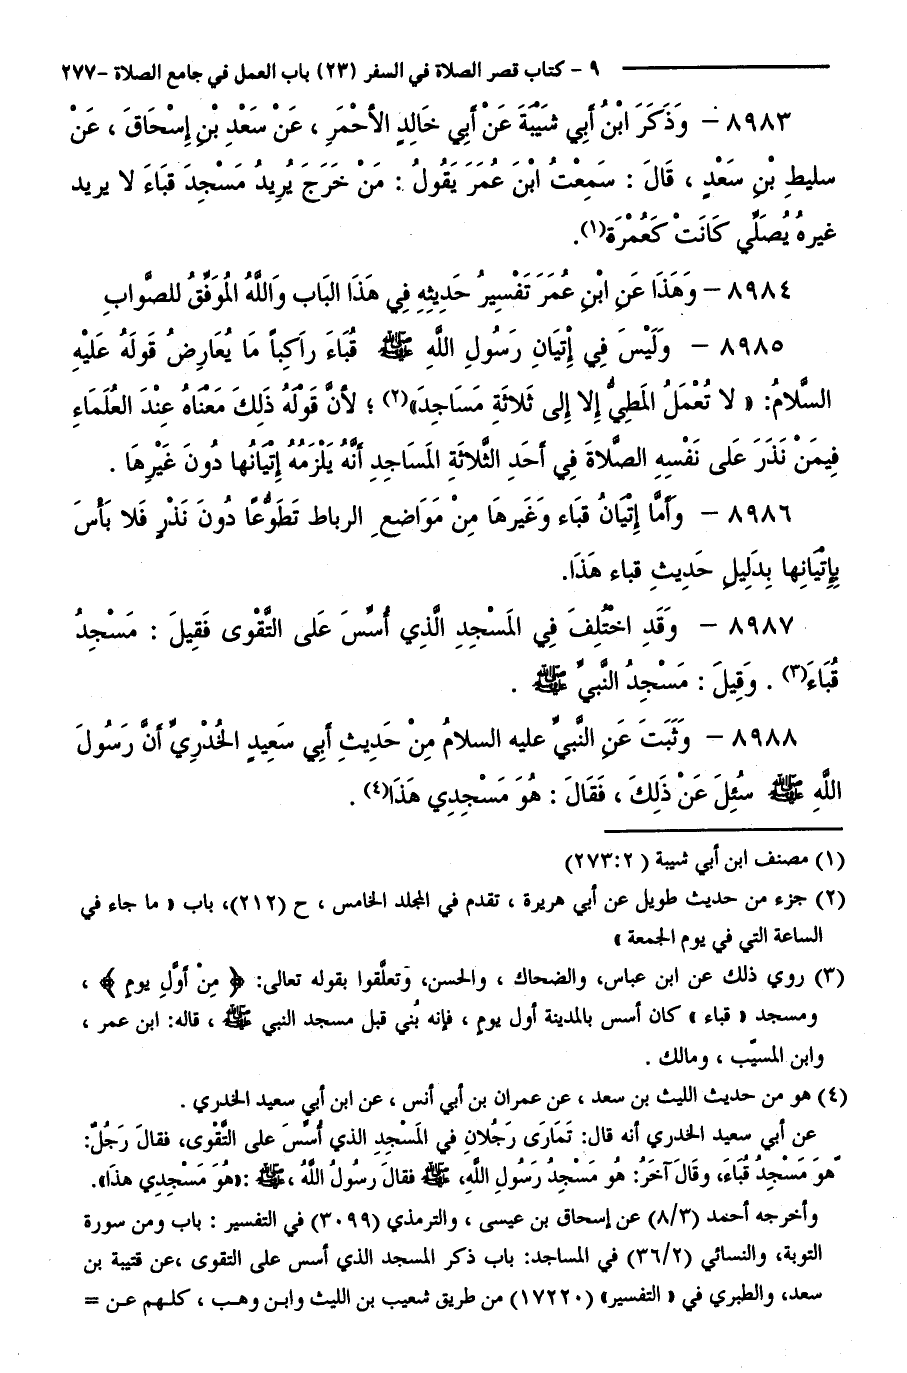 ٩ - كتاب قصر الصلاة في السفر (٢٣) باب العمل في جامع الصلاة -٢٧٧
٨٩٨٣ - وَذَكَرَ ابْنُ أَبِي شَيْبَةَ عَنْ أَبِي خَالِدٍ الأَحْمَرِ ، عَنْ سَعْدِ بْنِ إِسْحَاقَ ، عَنْ
سليطِ بْنِ سَعْدٍ ، قَالَ : سَمِعْتُ ابْنَ عُمَرَ يَقُولُ : مَنْ خَرَجَ يُرِيدُ مَسْجِدَ قبَاءَ لا يريد
غيرهُ يُصَلِّي كَانَتْ كَعُمْرَة(١).
٨٩٨٤ - وَهَذَا عَنِ ابْنِ عُمَرَ تَفْسِيرُ حَدِيثِهِ فِي هَذَا البَاب وَاللَّهُ المُوَفِّقُ للصَّوابِ
٨٩٨٥ - وَلَيْسَ فِي إِتْيَانِ رَسُولِ اللَّهِ ﷺ قُبَاءَ رَاكِباً مَا يُعَارِضُ قَولَهُ عَلَيْهِ
السَّلامُ: « لا تُعْمَلُ المَطِيُّ إِلا إِلى ثَلاثَةِ مَسَاجِدَ»(٢) ؛ لأَنَّ قَوْلَهُ ذَلِكَ مَعْنَاهُ عِنْدَ العُلَمَاءِ
فِيمَنْ نَذَرَ عَلَى نَفْسِهِ الصَّلاةَ فِي أَحَدِ الثَّلاثَةِ المَسَاجِدِ أَنَّهُ يَلْزَمُهُ إِتْيَانُها دُونَ غَيْرِهَا .
٨٩٨٦ - وَأَمَّا إِتْيَانُ قبَاء وَغَيرِهَا مِنْ مَوَاضع الرباط تَطَوُّعًا دُونَ نَذْرٍ فَلا بَأْسَ
بِإِتْيَانِها بِدَلِيلِ حَدِيثِ قباء هَذَا.
٨٩٨٧ - وَقَدِ اخْتُلِفَ فِي المَسْجِدِ الَّذِي أُسِّسَ عَلَى التَّقْوى فَقِيلَ : مَسْجِدُ
قُبَاءَ(٣) . وَقِيلَ : مَسْجِدُ النَّبِيِّ ﷺ .
٨٩٨٨ - وَثَبَتَ عَنِ النَّبِيِّ عليه السلامُ مِنْ حَدِيثِ أَبِي سَعِيدٍ الخُدْرِيِّ أَنَّ رَسُولَ
اللَّهِ ﷺ سُئِلَ عَنْ ذَلِكَ ، فَقَالَ : هُوَ مَسْجِدِي هَذَا(٤) .
(١) مصنف ابن أبي شيبة ( ٢:٢٧٣)
(٢) جزء من حديث طويل عن أبي هريرة ، تقدم في المجلد الخامس ، ح (٢١٢)، باب « ما جاء في
الساعة التي في يوم الجمعة »
(٣) روي ذلك عن ابن عباس، والضحاك ، والحسن، وَتعلَّقوا بقوله تعالى: ﴿ مِنْ أَوَّلِ يومٍ ﴾ ،
ومسجد « قباء » كان أسس بالمدينة أول يوم ، فإنه بُني قبل مسجد النبي ﷺ ، قاله: ابن عمر ،
وابن المسيّب ، ومالك .
(٤) هو من حديث الليث بن سعد ، عن عمران بن أبي أنس ، عن ابن أبي سعيد الخدري .
عن أبي سعيد الخدري أنه قال: تَمَارَى رَجُلانِ في المَسْجِدِ الذي أُسِّسَ على التَّقْوى، فقالَ رَجُلٌ:
هوَ مَسْجِدُ قُبَاءَ، وقَالَ آخَرُ: هُو مَسْجِدُ رَسُولِ اللَّهِ، ﷺ فقالَ رَسُولُ اللَّهُ ، ﷺ :«هُوَ مَسْجِدِي هذَا».
وأخرجه أحمد (٨/٣) عن إسحاق بن عيسى ، والترمذي (٣٠٩٩) في التفسير : باب ومن سورة
التوبة، والنسائي (٣٦/٢) في المساجد: باب ذكر المسجد الذي أسس على التقوى ،عن قتيبة بن
سعد، والطبري في « التفسير» (١٧٢٢٠) من طريق شعيب بن الليث وابن وهب ، كلهم عن =